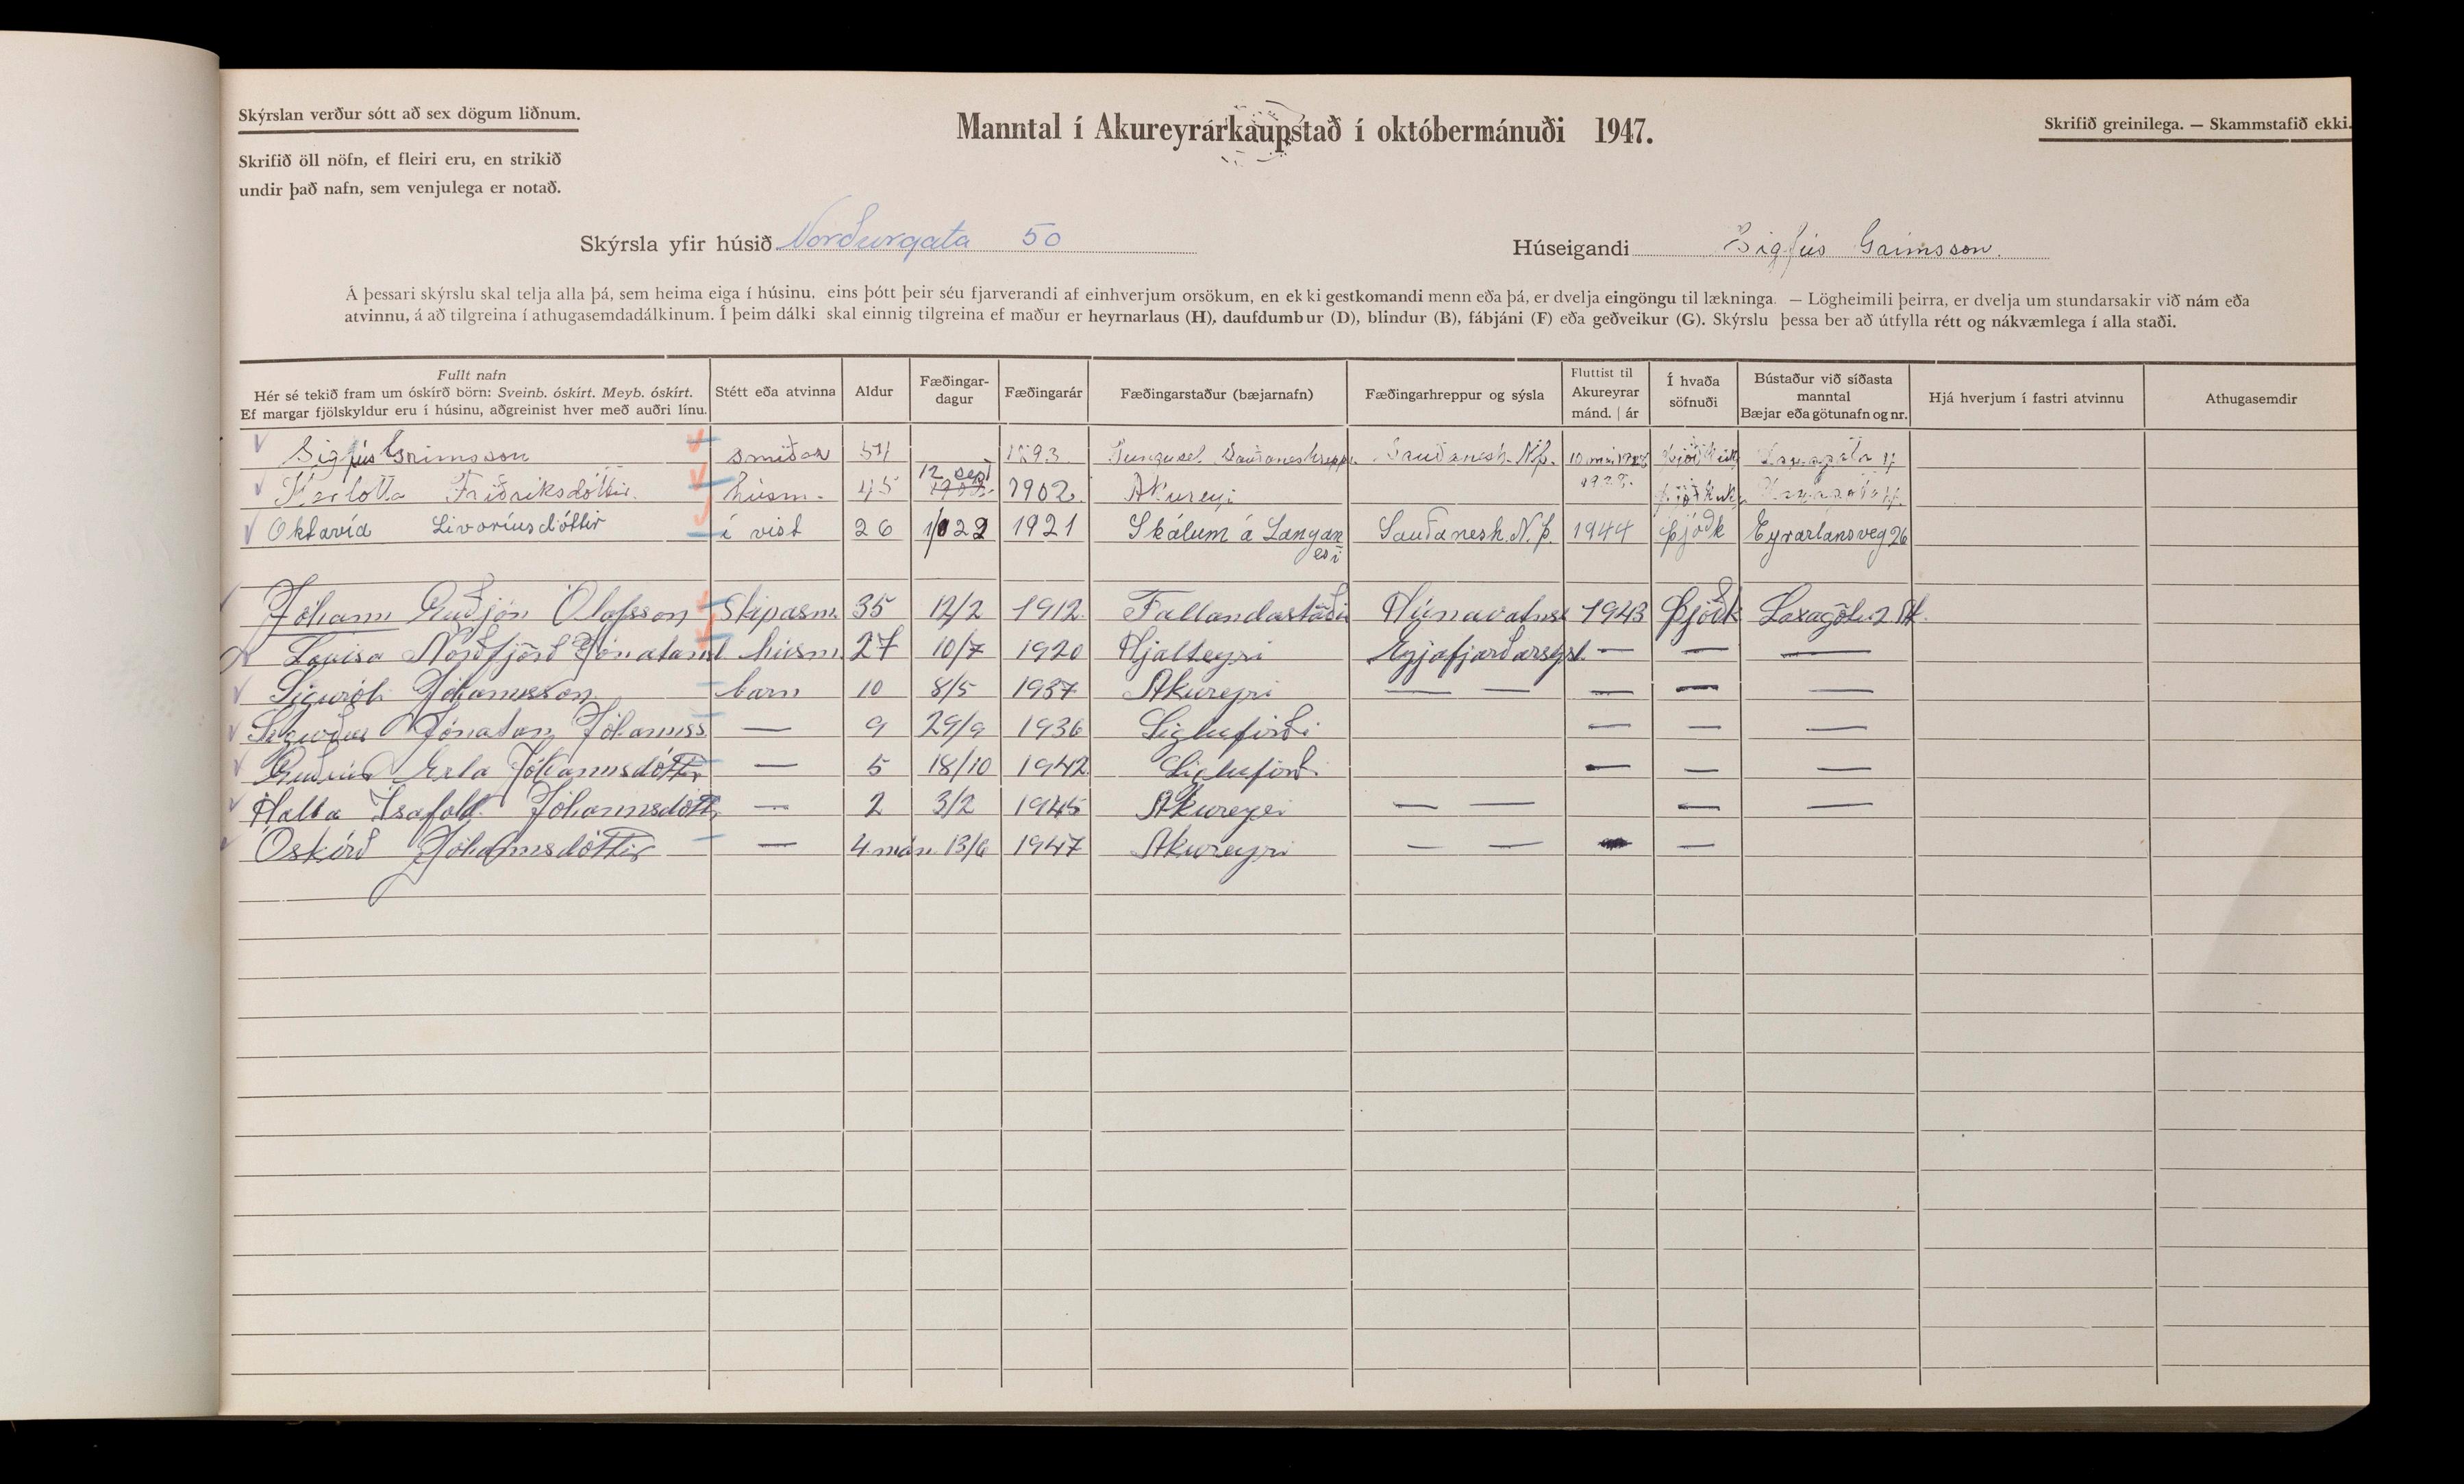 Skýrslan verður sótt að sex dögum liðnum.
Manntal í Akureyrarkaupstað í októbermánuði 1947.
Skrifið greinilega. — Skammstafið ekki.
Skrifið öll nöfn, ef fleiri eru, en strikið
undir það nafn, sem venjulega er notað.
Skýrsla yfir húsið Norðurgata 50
Húseigandi Sigfús Grímsson.
Á þessari skýrslu skal telja alla þá, sem heima eiga í húsinu, eins þótt þeir séu fjarverandi af einhverjum orsökum, en ekki gestkomandi menn eða þá, er dvelja eingöngu til lækninga. — Lögheimili þeirra, er dvelja um stundarsakir við nám eða
atvinnu, á að tilgreina í athugasemdadálkinum. Í þeim dálki skal einnig tilgreina ef maður er heyrnarlaus (H), daufdumbur (D), blindur (B), fábjáni (F) eða geðveikur (G). Skýrslu þessa ber að útfylla rétt og nákvæmlega í alla staði.
Fullt nafn
Hér sé tekið fram um óskírð börn: Sveinb. óskírt. Meyb. óskírt.
Ef margar fjölskyldur eru í húsinu, aðgreinist hver með auðri línu.
Stétt eða atvinna
Aldur
Fæðingar-
dagur
Fæðingarár
Fæðingarstaður (bæjarnafn)
Fæðingarhreppur og sýsla
Fluttist til
Akureyrar
mánd. | ár
Í hvaða
söfnuði
Bústaður við síðasta
manntal
Bæjar eða götunafn og nr.
Hjá hverjum í fastri atvinnu
Athugasemdir
Sigfús Grimsson smiður 54 1893 Tungusel Sauðaneshrepp Sauðanesh. N.þ.
Friðriksdóttir húsm. 45 12 sept 1902 Akureyri
Oktavía Livoríusdóttir í vist 26 1921 Skálum á Langan Sauðanesh. N.þ. 1944 þjóðk Eyrarlansveg 26
esi
Jóhann Guðjón Ólafsson Skipasm. 35 12/2 1912 Fallandastöðu Húnavatns 1943 Þjóðk
Lovisa Norðfjörð Jónatansd húsm. 27 10/7 1920 Hjalteyri Eyjafjarðarsýsl. — — —
Sigurób Jóhannsson barn 10 8/5 1937 Akureyri — — — — —
Sigurður Jónatan Jóhannss — 9 29/9 1936 Siglufirði — — —
Guðrún Erla Jóhannsdóttir — 5 18/10 1942 Siglufirði — — —
Halla Ísafold Jóhannsdótt — 2 3/2 1945 Akureyri — — — —
Óskírð Jóhannsdóttir — 4 mán. 13/6 1947 Akureyri — — —